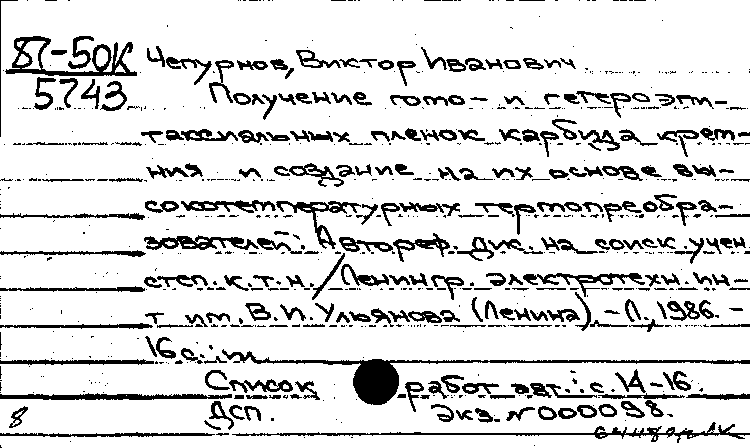 87-50К Чепурнов, Виктор Иванович
5743 Получение гомо- и гетероэпи-
таксиальных пленок карбида крем-
ния и создание на их основе вы-
сокотемпературных термопреобра-
зователей: Автореф. дис. на соиск. учен
степ. к.т.н. / Ленингр. электротехн. ин-
т им. В.И. Ульянова (Ленина). - Л., 1986. -
16 с.: ил.
Список работ авт.: с. 14-16.
8 ДСП. Экз. №000098.